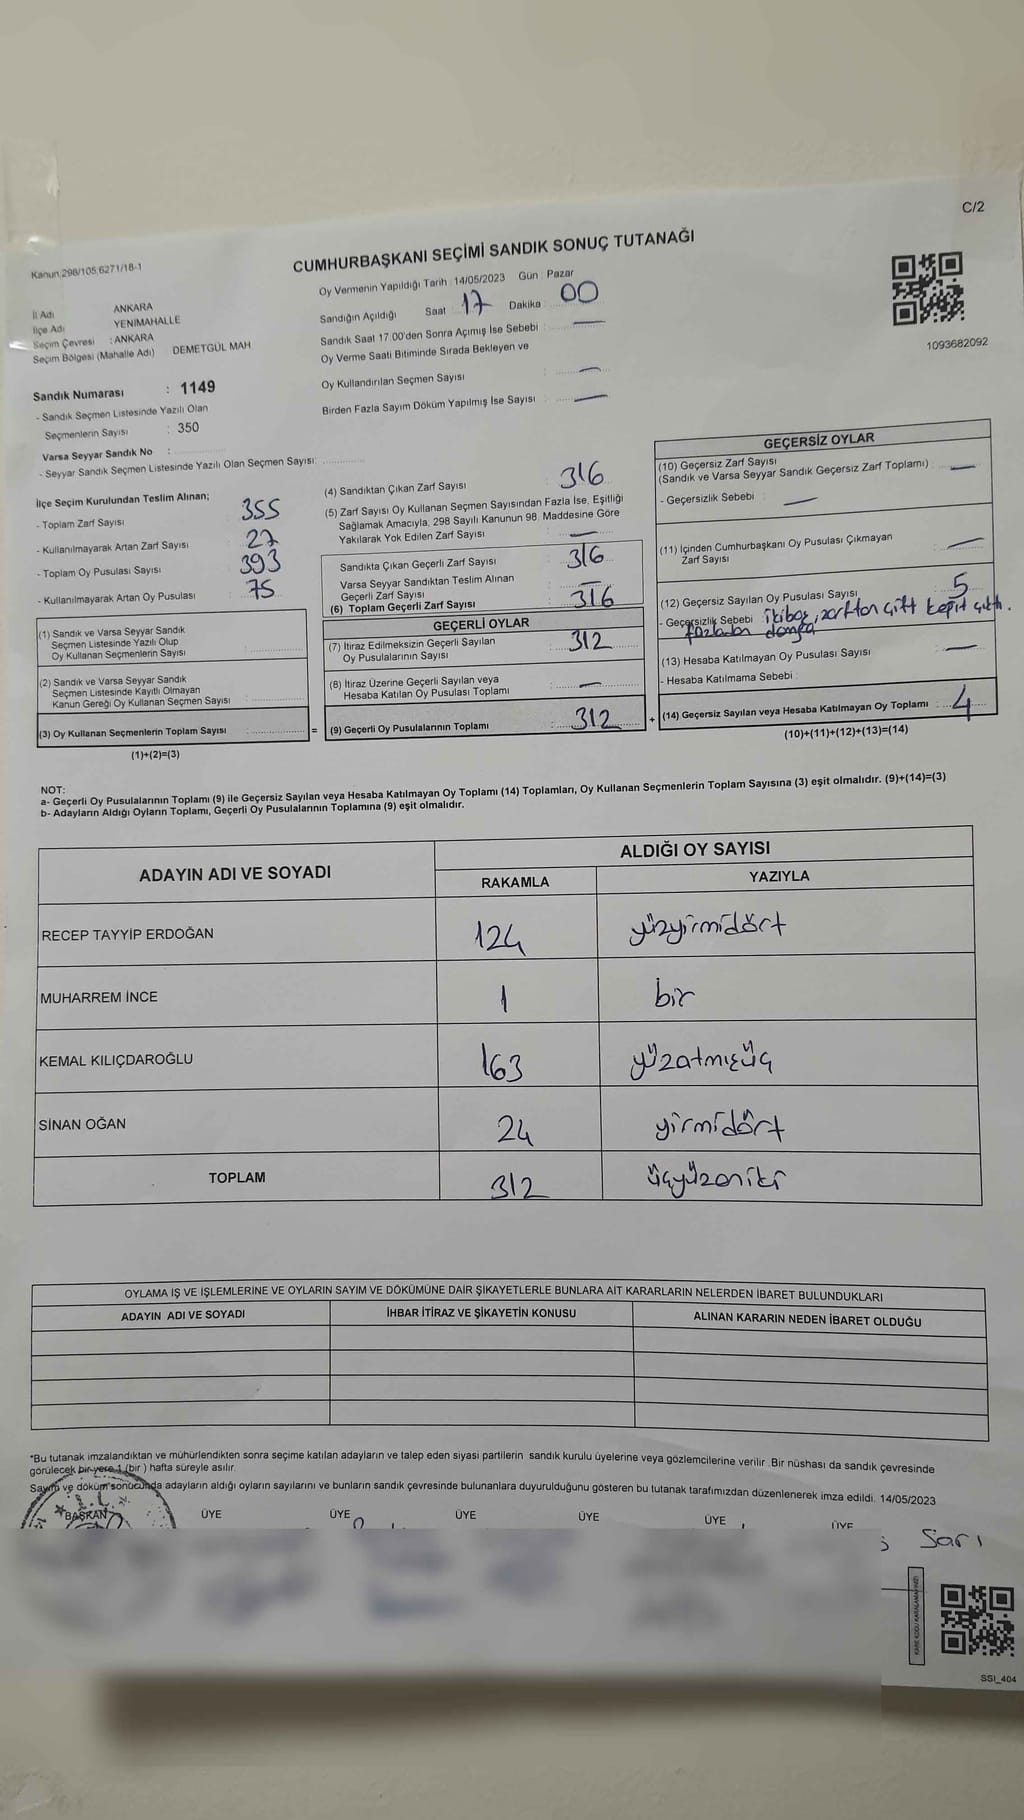 C/2
Kanun 298/105,6271/18-1
CUMHURBAŞKANI SEÇİMİ SANDIK SONUÇ TUTANAĞI
Oy Vermenin Yapıldığı Tarih : 14/05/2023 Gün : Pazar
İl Adı ANKARA
İlçe Adı YENİMAHALLE
Seçim Çevresi : ANKARA
Seçim Bölgesi (Mahalle Adı) DEMETGÜL MAH
Sandığın Açıldığı Saat 17 Dakika 00
Sandık Saat 17.00'den Sonra Açımış İse Sebebi : —
Oy Verme Saati Bitiminde Sırada Bekleyen ve
Oy Kullandırılan Seçmen Sayısı : —
Birden Fazla Sayım Döküm Yapılmış İse Sayısı : —
1093682092
Sandık Numarası : 1149
- Sandık Seçmen Listesinde Yazılı Olan
Seçmenlerin Sayısı : 350
Varsa Seyyar Sandık No :
- Seyyar Sandık Seçmen Listesinde Yazılı Olan Seçmen Sayısı:
İlçe Seçim Kurulundan Teslim Alınan;
- Toplam Zarf Sayısı : 355
- Kullanılmayarak Artan Zarf Sayısı : 27
- Toplam Oy Pusulası Sayısı : 393
- Kullanılmayarak Artan Oy Pusulası : 75
(1) Sandık ve Varsa Seyyar Sandık
Seçmen Listesinde Yazılı Olup
Oy Kullanan Seçmenlerin Sayısı :
(2) Sandık ve Varsa Seyyar Sandık
Seçmen Listesinde Kayıtlı Olmayan
Kanun Gereği Oy Kullanan Seçmen Sayısı :
(3) Oy Kullanan Seçmenlerin Toplam Sayısı : =
(1)+(2)=(3)
(4) Sandıktan Çıkan Zarf Sayısı : 316
(5) Zarf Sayısı Oy Kullanan Seçmen Sayısından Fazla İse, Eşitliği
Sağlamak Amacıyla, 298 Sayılı Kanunun 98. Maddesine Göre
Yakılarak Yok Edilen Zarf Sayısı : —
Sandıkta Çıkan Geçerli Zarf Sayısı : 316
Varsa Seyyar Sandıktan Teslim Alınan
Geçerli Zarf Sayısı : —
(6) Toplam Geçerli Zarf Sayısı : 316
GEÇERLİ OYLAR
(7) İtiraz Edilmeksizin Geçerli Sayılan
Oy Pusulalarının Sayısı : 312
(8) İtiraz Üzerine Geçerli Sayılan veya
Hesaba Katılan Oy Pusulası Toplamı : —
(9) Geçerli Oy Pusulalarının Toplamı : 312 +
GEÇERSİZ OYLAR
(10) Geçersiz Zarf Sayısı
(Sandık ve Varsa Seyyar Sandık Geçersiz Zarf Toplamı) : —
- Geçersizlik Sebebi : —
(11) İçinden Cumhurbaşkanı Oy Pusulası Çıkmayan
Zarf Sayısı : —
(12) Geçersiz Sayılan Oy Pusulası Sayısı : 5
- Geçersizlik Sebebi iki boş, zarftan çift kağıt çıktı.
fazladan damga
(13) Hesaba Katılmayan Oy Pusulası Sayısı : —
- Hesaba Katılmama Sebebi :
(14) Geçersiz Sayılan veya Hesaba Katılmayan Oy Toplamı : 4
(10)+(11)+(12)+(13)=(14)
NOT:
a- Geçerli Oy Pusulalarının Toplamı (9) ile Geçersiz Sayılan veya Hesaba Katılmayan Oy Toplamı (14) Toplamları, Oy Kullanan Seçmenlerin Toplam Sayısına (3) eşit olmalıdır. (9)+(14)=(3)
b- Adayların Aldığı Oyların Toplamı, Geçerli Oy Pusulalarının Toplamına (9) eşit olmalıdır.
ADAYIN ADI VE SOYADI ALDIĞI OY SAYISI
RAKAMLA YAZIYLA
RECEP TAYYİP ERDOĞAN 124 yüzyirmidört
MUHARREM İNCE 1 bir
KEMAL KILIÇDAROĞLU 163 yüzatmışüç
SİNAN OĞAN 24 yirmidört
TOPLAM 312 üçyüzoniki
OYLAMA İŞ VE İŞLEMLERİNE VE OYLARIN SAYIM VE DÖKÜMÜNE DAİR ŞİKAYETLERLE BUNLARA AİT KARARLARIN NELERDEN İBARET BULUNDUKLARI
ADAYIN ADI VE SOYADI İHBAR İTİRAZ VE ŞİKAYETİN KONUSU ALINAN KARARIN NEDEN İBARET OLDUĞU
*Bu tutanak imzalandıktan ve mühürlendikten sonra seçime katılan adayların ve talep eden siyasi partilerin sandık kurulu üyelerine veya gözlemcilerine verilir. Bir nüshası da sandık çevresinde
görülecek bir yere 1 (bir) hafta süreyle asılır.
Sayım ve döküm sonucunda adayların aldığı oyların sayılarını ve bunların sandık çevresinde bulunanlara duyurulduğunu gösteren bu tutanak tarafımızdan düzenlenerek imza edildi. 14/05/2023
BAŞKAN ÜYE ÜYE ÜYE ÜYE ÜYE ÜYE
Sarı
SSI_404